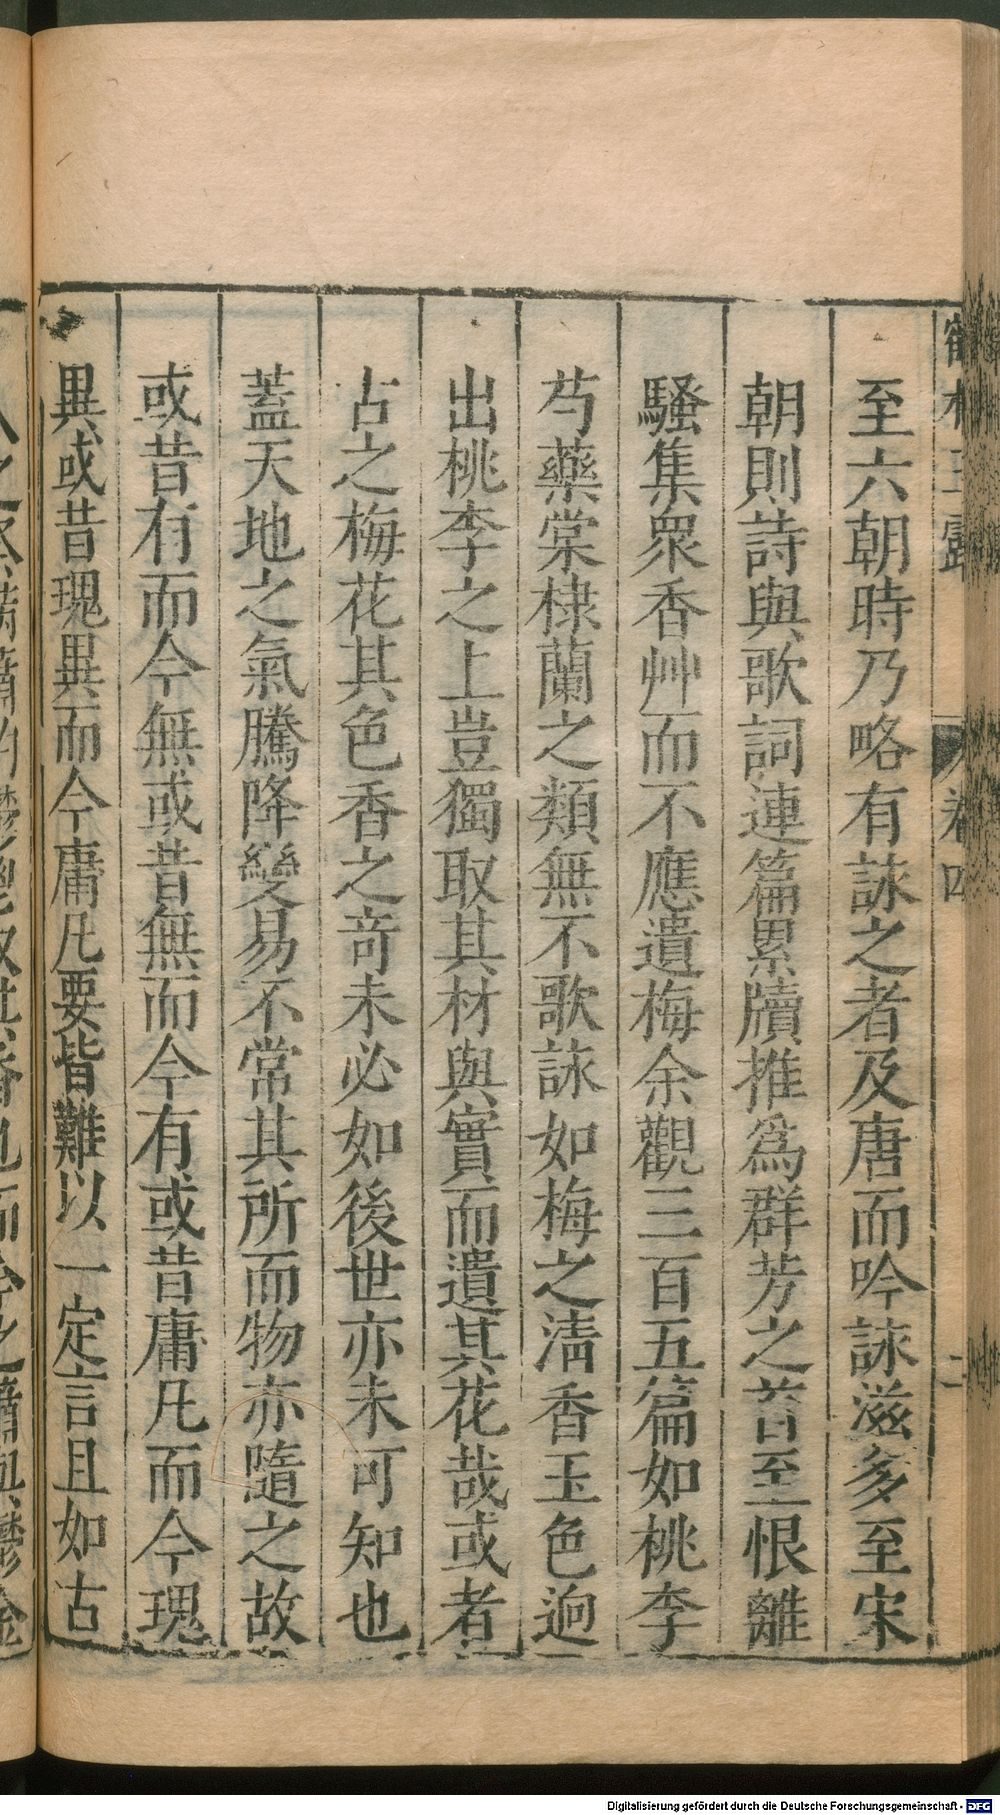 至六朝時乃略有詠之者及唐而吟詠滋多至宋
朝則詩與歌詞連篇累牘推爲群芳之首至恨離
騷集衆香艸而不應遺梅余觀三百五篇如桃李
芍藥棠棣蘭之類無不歌詠如梅之清香玉色迥
出桃李之上豈獨取其材與實而遺其花哉或者
古之梅花其色香之奇未必如後世亦未可知也
蓋天地之氣騰降變易不常其所而物亦隨之故
或昔有而今無或昔無而今有或昔庸凡而今瑰
異或昔瑰異而今庸凡要皆難以一定言且如古
卷四
二
Digitalisierung gefördert durch die Deutsche Forschungsgemeinschaft - DFG